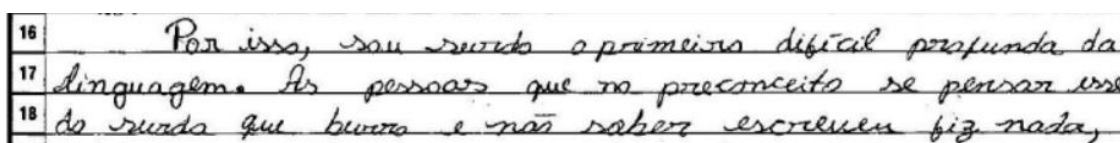 16 Por isso, sou surdo o primeiro difícil profunda da
17 linguagem. As pessoas que no preconceito se pensar esse
18 do surdo que burro e não saber escreveu fiz nada,